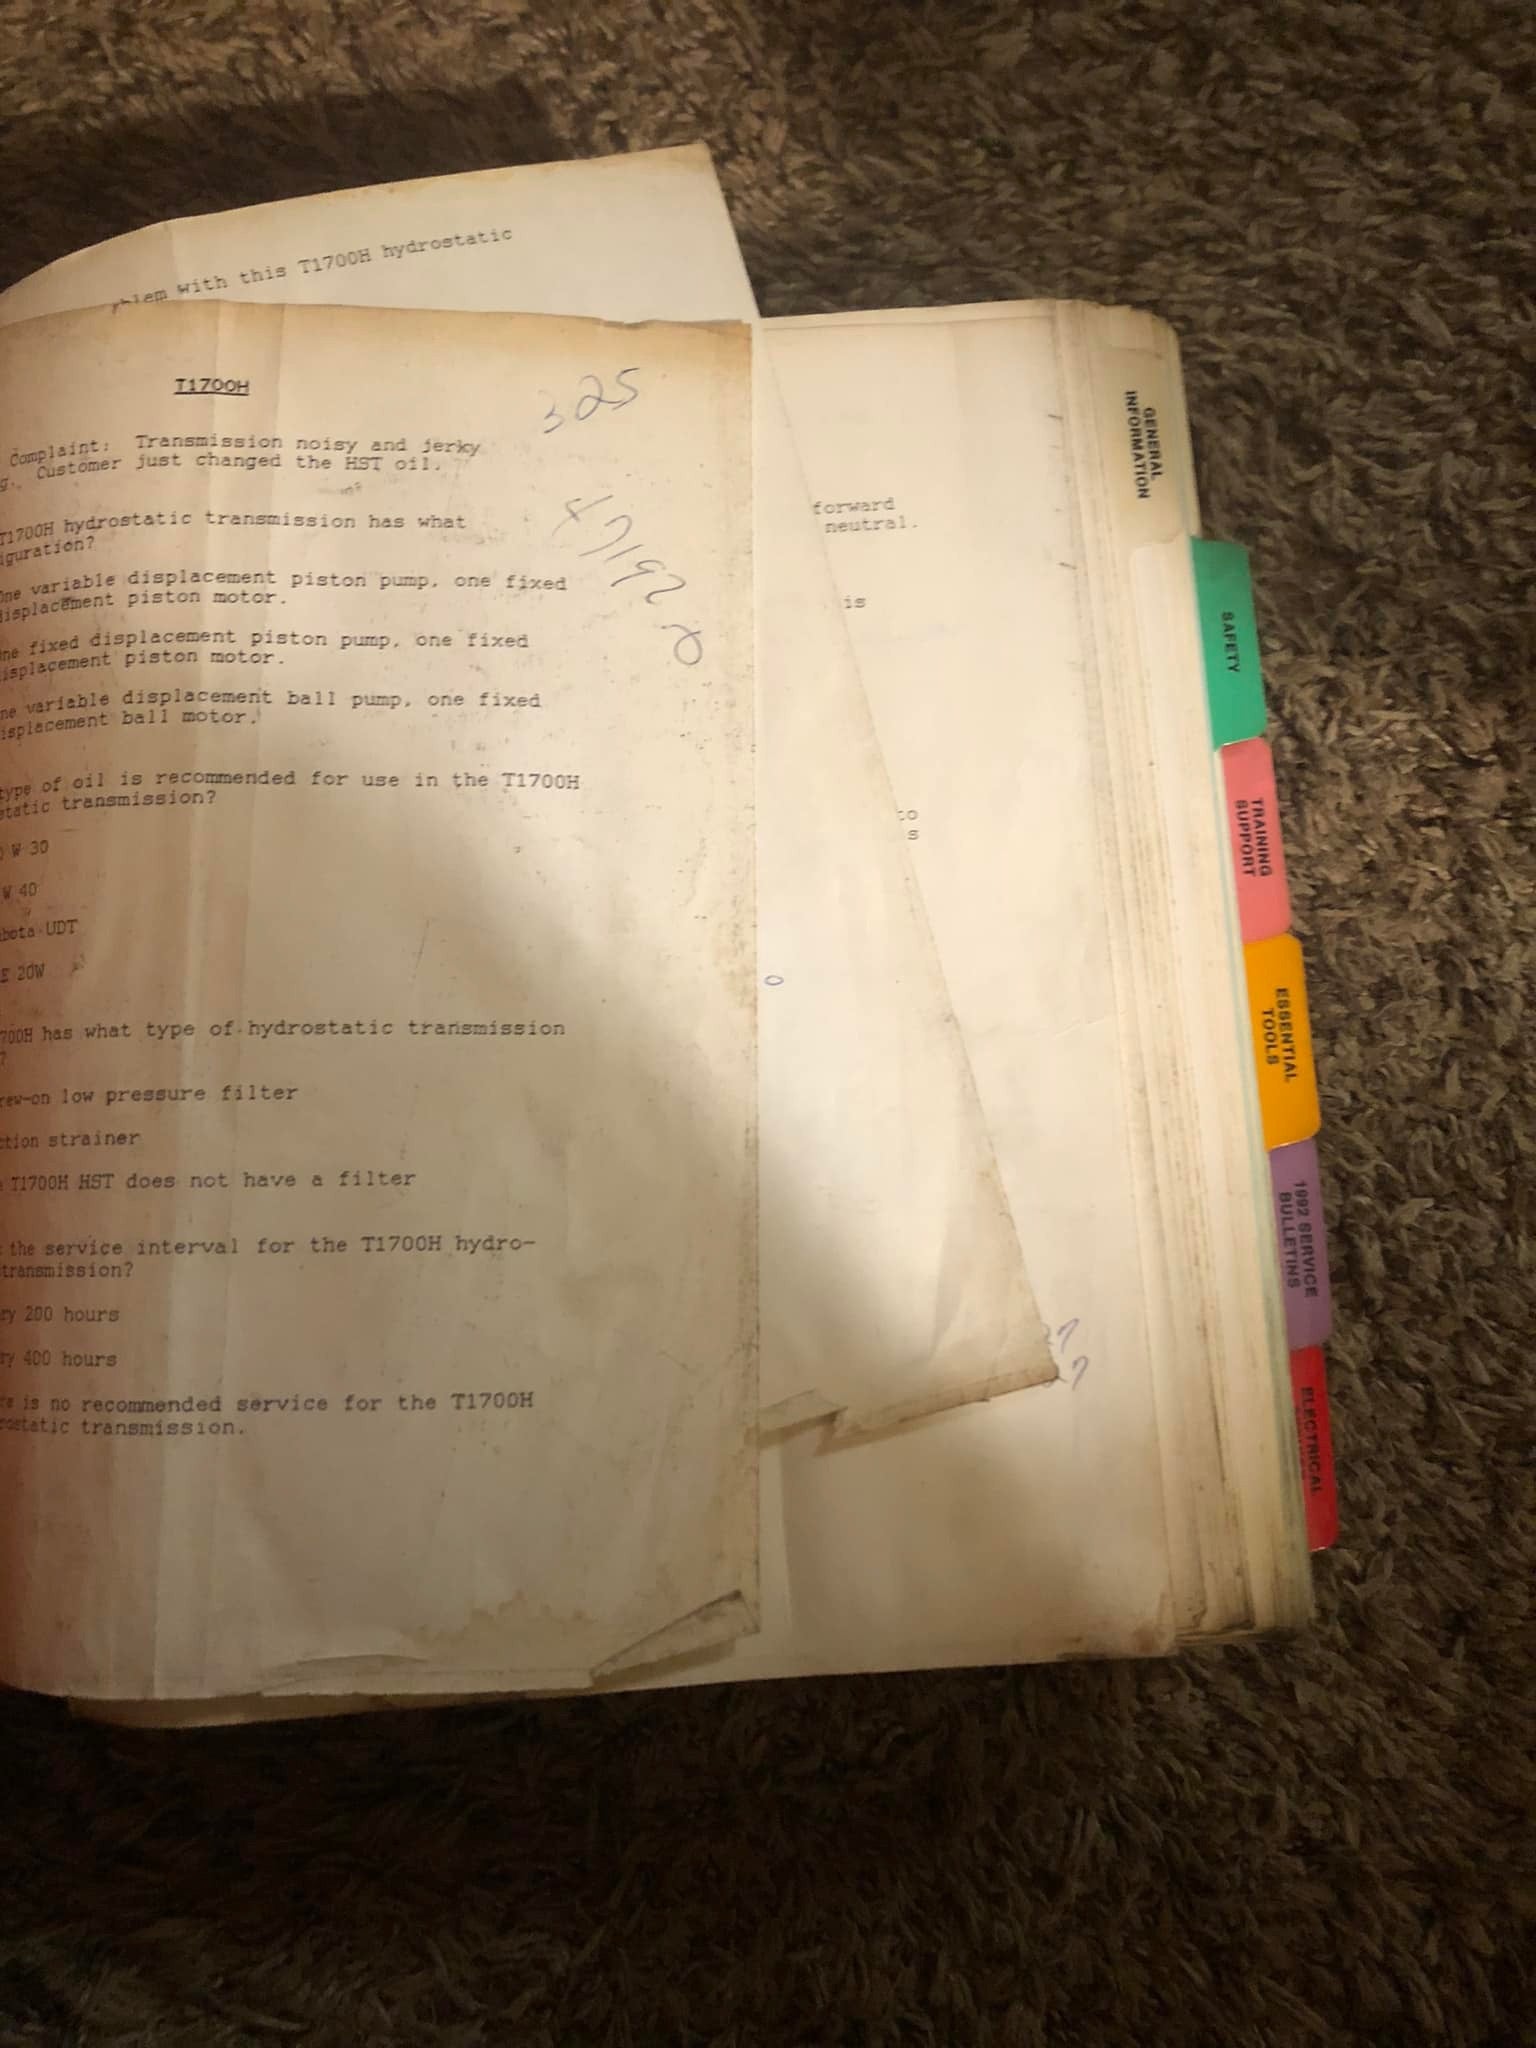 with this T1700H hydrostatic
T1700H
325
Complaint: Transmission noisy and jerky
Customer just changed the HST oil.
T1700H hydrostatic transmission has what
iguration?
One variable displacement piston pump, one fixed
displacement piston motor.
one fixed displacement piston pump, one fixed
isplacement piston motor.
ne variable displacement ball pump, one fixed
isplacement ball motor.
type of oil is recommended for use in the T1700H
static transmission?
W 30
W 40
bota UDT
E 20W
700H has what type of hydrostatic transmission
?
rew-on low pressure filter
ction strainer
T1700H HST does not have a filter
the service interval for the T1700H hydro-
transmission?
ry 200 hours
ry 400 hours
re is no recommended service for the T1700H
rostatic transmission.
forward
neutral.
is
to
s
GENERAL
INFORMATION
SAFETY
TRAINING
SUPPORT
ESSENTIAL
TOOLS
1992 SERVICE
BULLETINS
ELECTRICAL